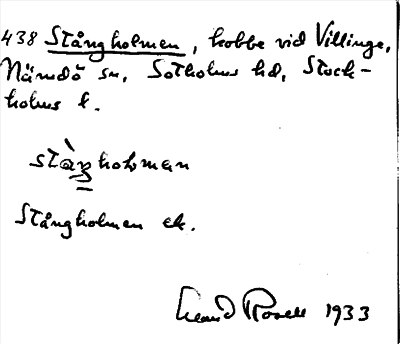 438 Stångholmen, kobbe vid Villinge,
Nämdö sn, Sotholms hd, Stock-
holms l.
stàŋholman
Stångholmen ek.
1933